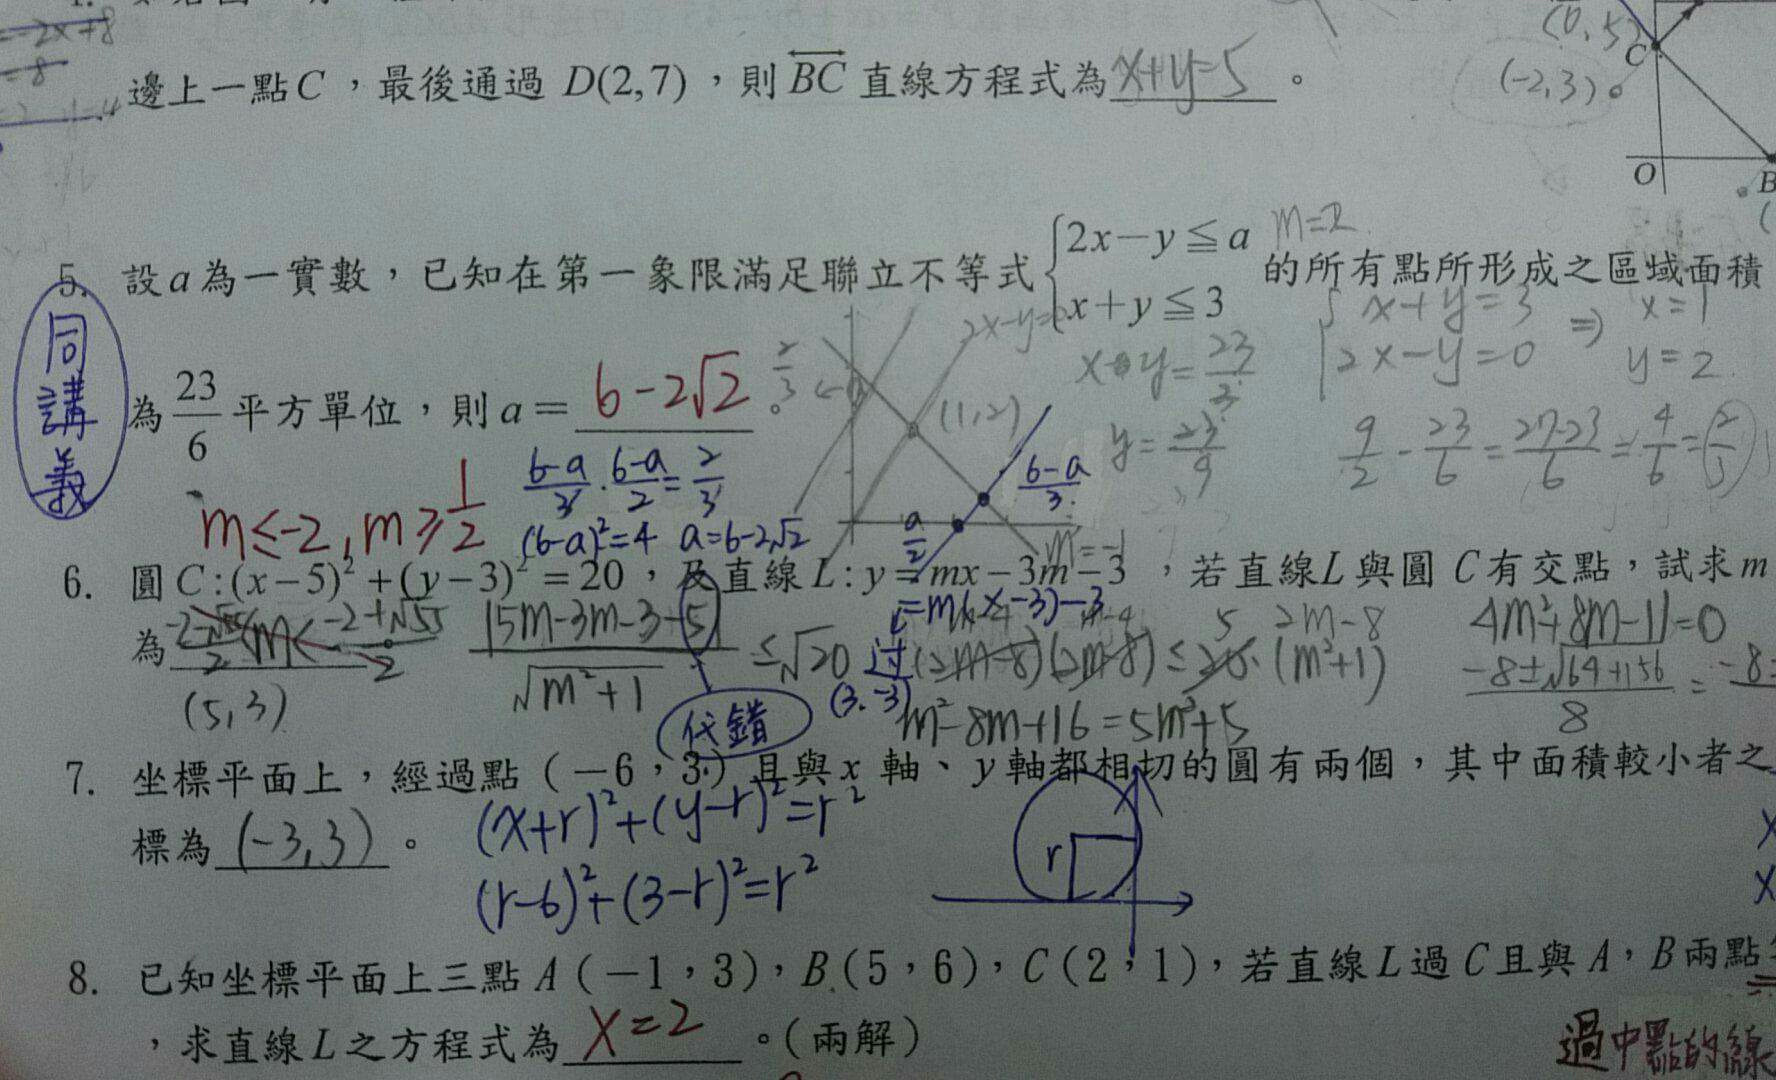 =-2x+8
=8
(0,5)
C
(-2,3)
O
B
邊上一點C,最後通過 D(2,7),則BC 直線方程式為 x+y=5 。
5. 設a為一實數,已知在第一象限滿足聯立不等式 { 2x-y≦a
x+y≦3 的所有點所形成之區域面積
m=2
同講義
為 23/6 平方單位,則 a= 6-2√2 。
2x-y=
x+y=3
2x-y=0
⇒ x=1
y=2
2/3
(1,2)
x y=23/3
y=23/9
9/2-23/6=27-23/6=4/6=2/3
(6-a)/3·(6-a)/2=2/3
(6-a)/3
a/2
(6-a)²=4 a=6-2√2
m=-1
m≤-2, m≥1/2
6. 圓 C:(x-5)²+(y-3)²=20,及直線 L:y=mx-3m-3,若直線L與圓 C有交點,試求m
=m(x-3)-3
為 (-2-√55)/2<m<(-2+√55)/2
|5m-3m-3+5|/√(m²+1) ≤√20
过(3.-3)
(2m-8)(2m-8)≤20·(m²+1)
5 2m-8
4m²+8m-11=0
(-8±√64+156)/8=-8
(5,3)
代錯
m²-8m+16=5m²+5
7. 坐標平面上,經過點(-6,3)且與x 軸、y軸都相切的圓有兩個,其中面積較小者之
標為 (-3,3) 。
(x+r)²+(y-r)²=r²
(r-6)²+(3-r)²=r²
r
8. 已知坐標平面上三點A(-1,3),B(5,6),C(2,1),若直線L過C且與A,B兩點
,求直線L之方程式為 x=2 。(兩解)
過中點的線